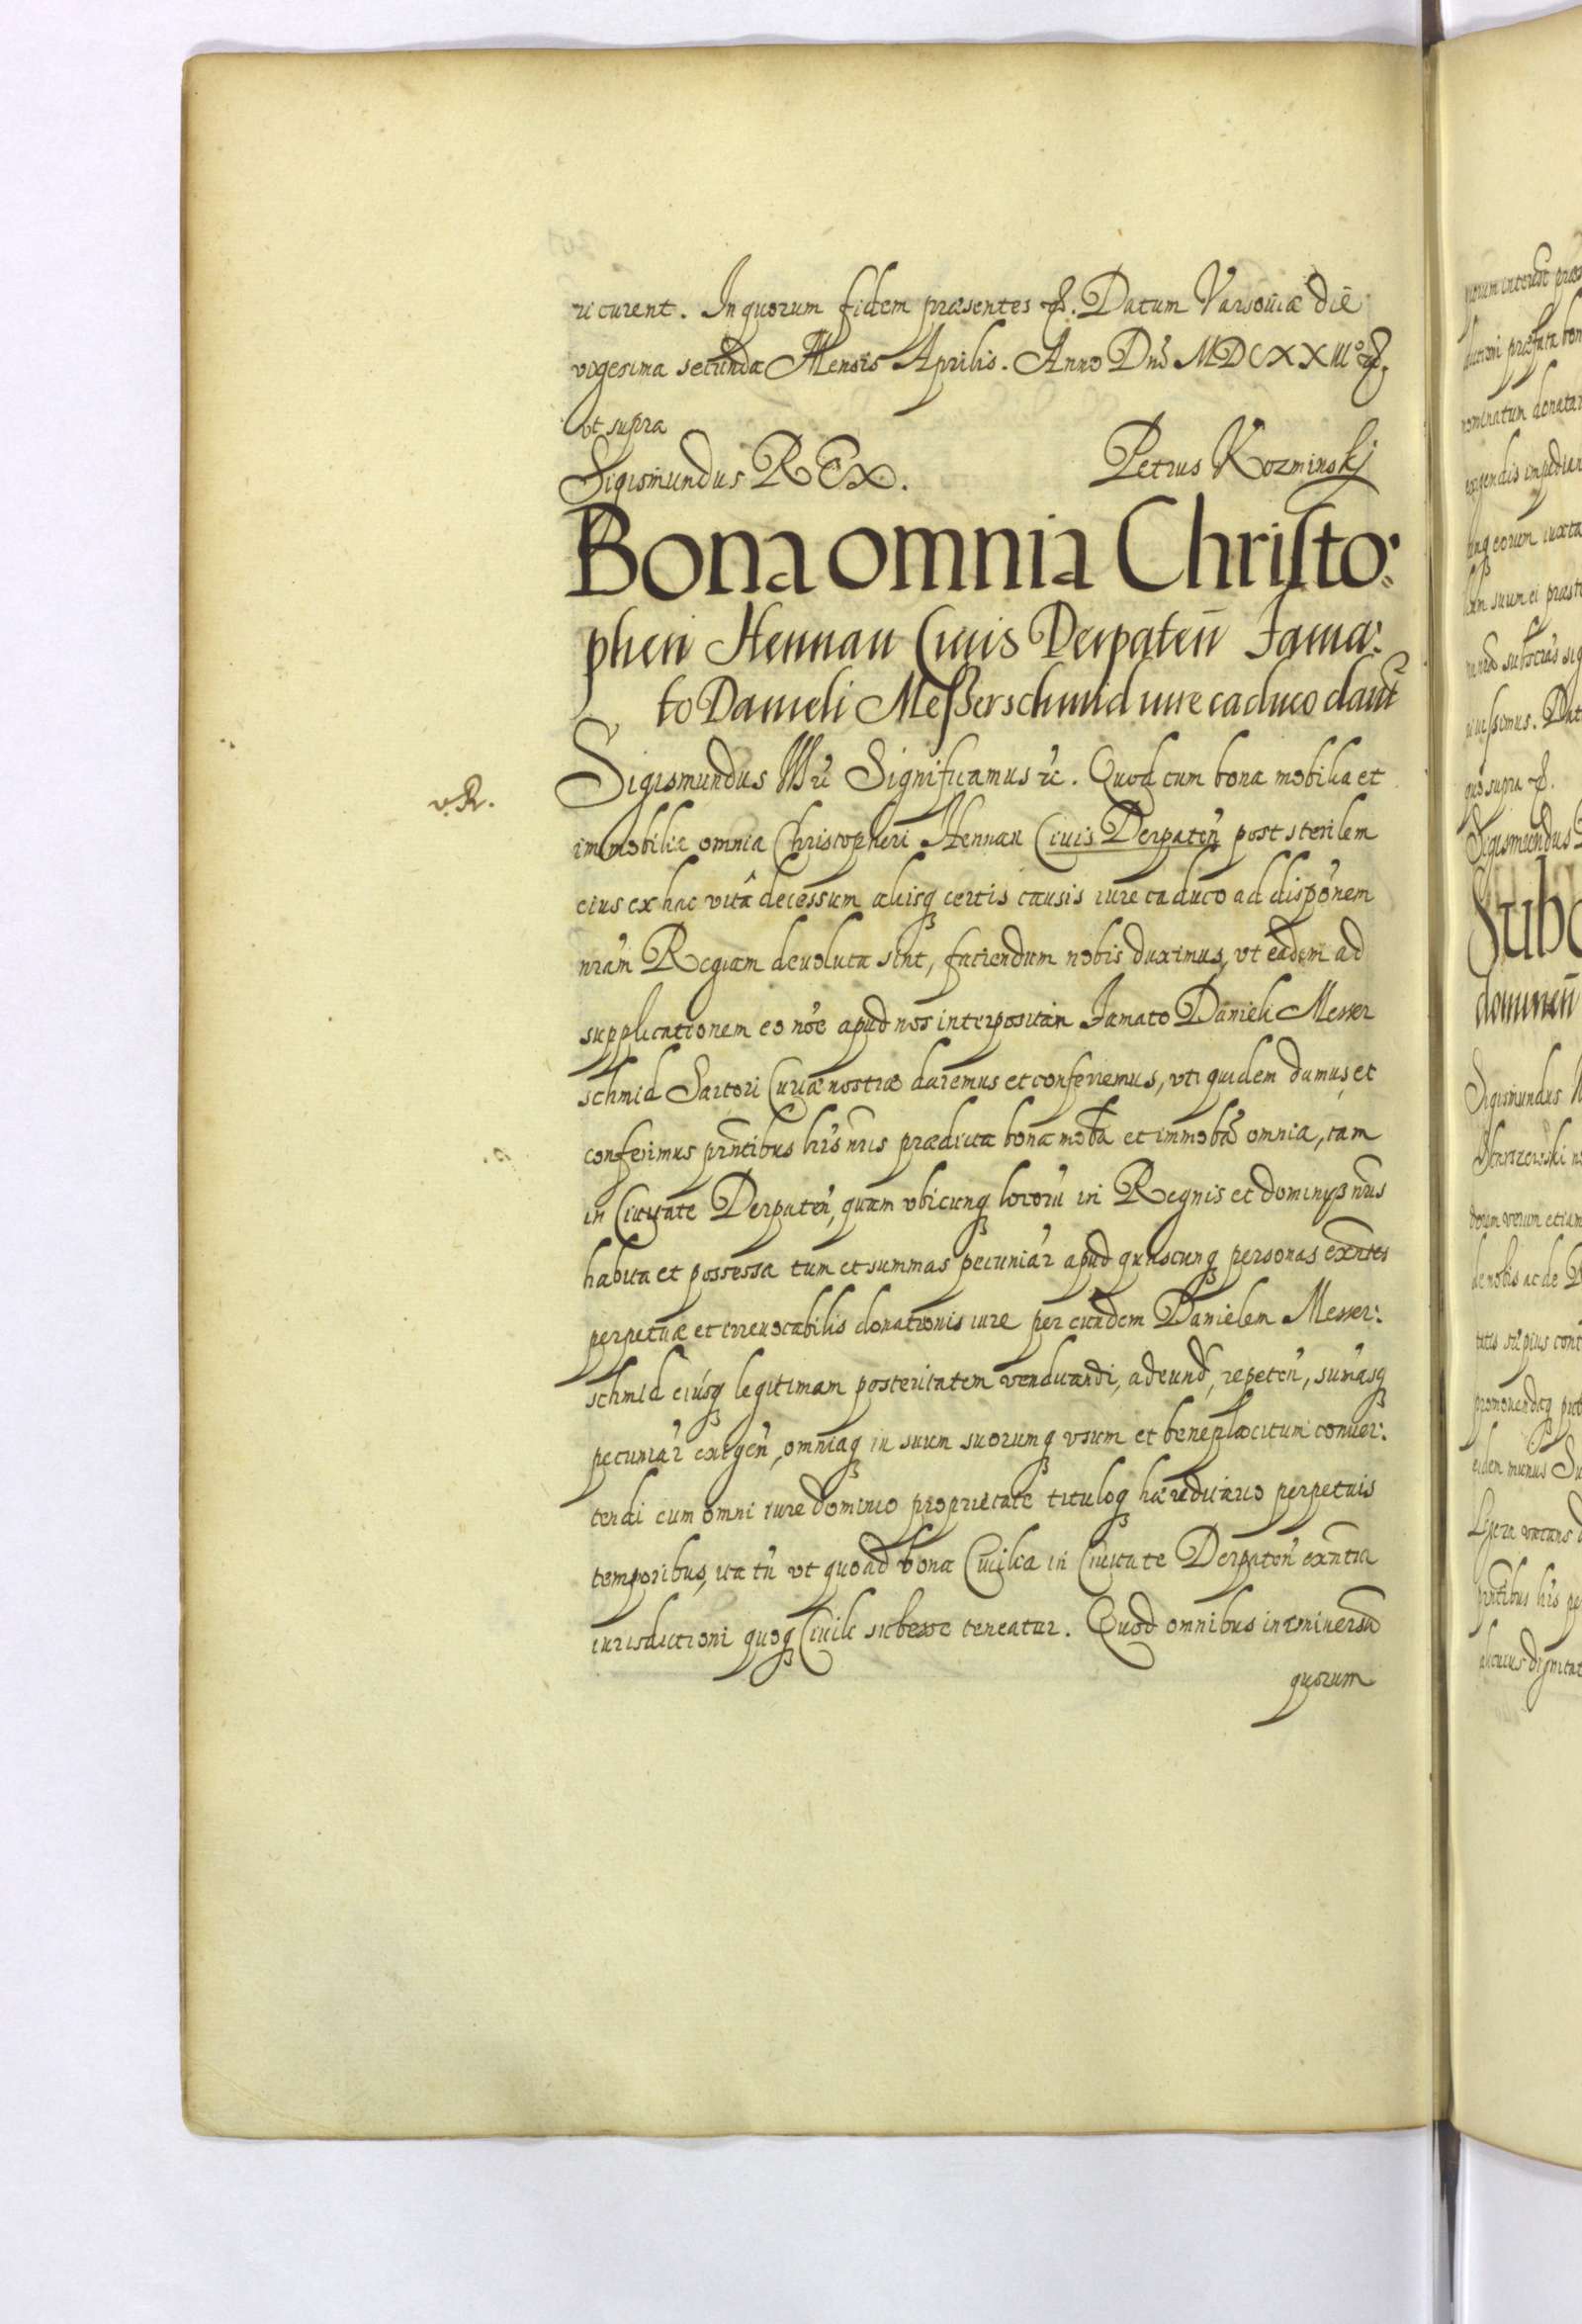 ri curent. In quorum fidem præsentes &. Datum Varsoviæ diē
vigesima secunda Mensis Aprilis. Anno Dni MDCXXIIIo &.
vt supra
Sigismundus REX. Petrus Kozminskj
Bona omnia Christo:
pheri Hennan Ciuis Derpateñ Fama:
to Danieli Messerschmid iure caduco dant
Sigismundus IIIrc Significamus rc. Quod cum bona mobilia et
v. R.
immobilia omnia Christopheri Hennan Ciuis Derpateñ post sterilem
eius ex hac vitâ decessum alijsq certis causis iure caduco ad disponem
nram Regiam deuoluta sint, faciendum nobis duximus, vt eadem ad
supplicationem eo noe apud nos interpositam Famato Danieli Messer
schmid Sartori Curiæ nostræ daremus et conferremus, vti quidem damus, et
conferimus pntibus lris nris prædicta bona moba et immoba omnia, tam
in Ciuitate Derpateñ, quam vbicunq locorũ in Regnis et dominijs nris
habita et possessa tum et summas pecuniar apud quascunq personas exntes
perpetuæ et irreuocabilis donationis iure per eundem Danielem Messer:
schmid eiusq legitimam posteritatem vendicandi, adeund, repeteñ, sumasq
pecuniar exigeñ, omniaq in suum suorumq vsum et beneplacitum conuer:
tendi cum omni iure dominio proprietate tituloq hæreditario perpetuis
temporibus, ita tñ vt quoad bona Ciuilia in Ciuitate Derpateñ exntia
iurisdictioni quoq Ciuili subesse teneatur. Quod omnibus in vniuersũ
quorum